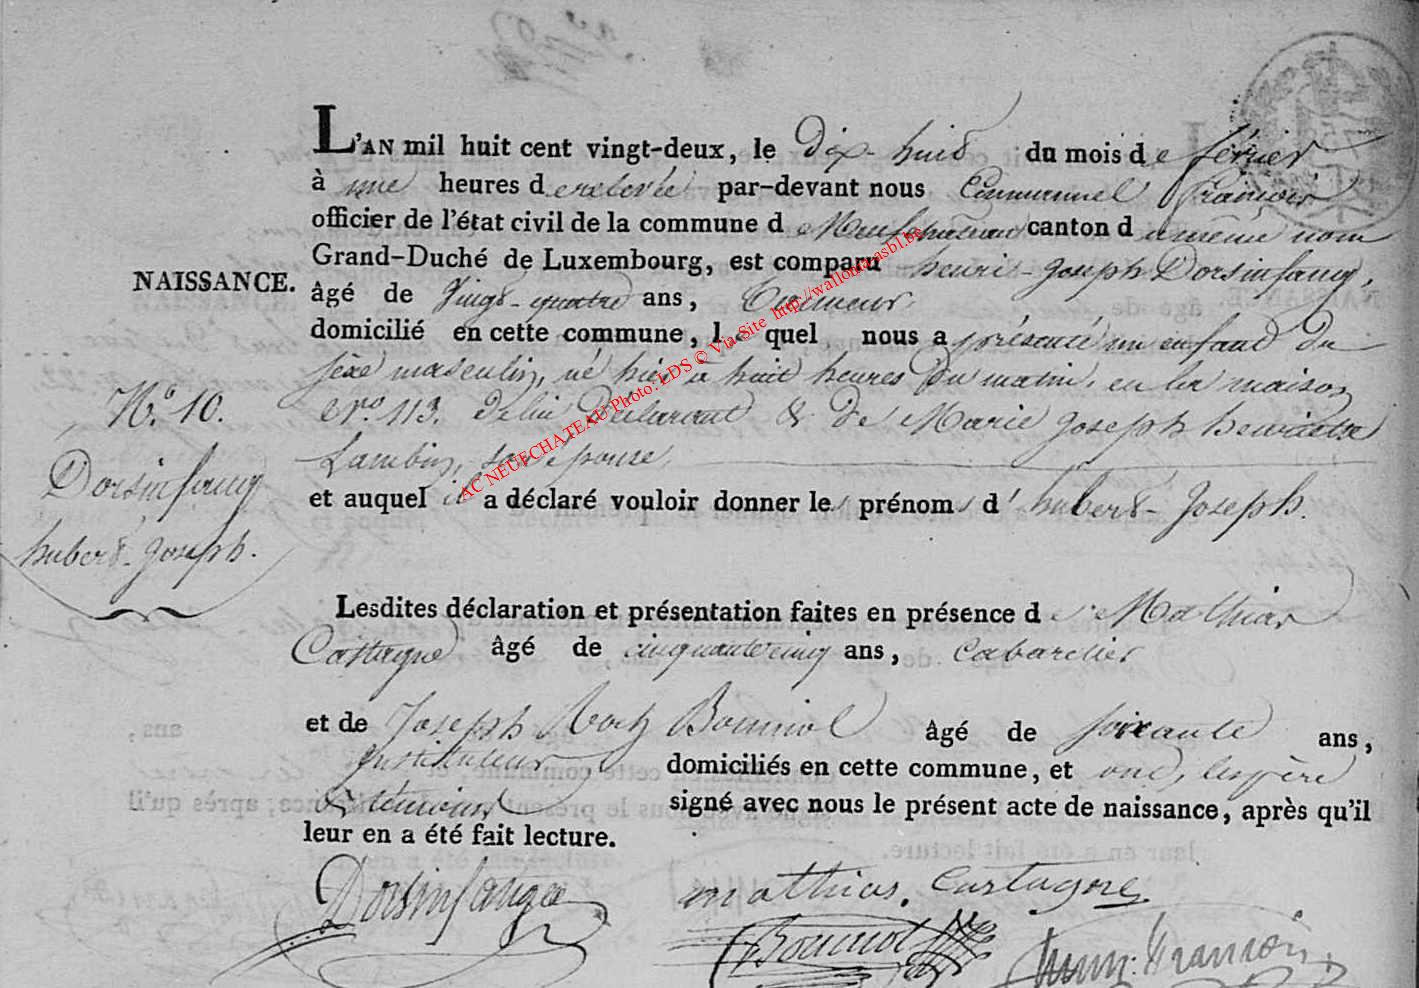 L'AN mil huit cent vingt-deux, le dix-huit du mois de février
à une heures de relevée par-devant nous Emmanuel François
officier de l'état civil de la commune de Neufchâteau canton du même nom
Grand-Duché de Luxembourg, est comparu henri-Joseph Dorsinfang,
NAISSANCE.
âgé de Vingt-quatre ans, Tanneur,
domicilié en cette commune, lequel nous a présenté un enfant du
sèxe masculin, né hier à huit heures du matin, en la maison
N.º 10.
Nro 113. de lui Déclarant & de Marie Joseph henriette
Lambin, son épouse,
Dorsinfang
hubert-Joseph.
et auquel il a déclaré vouloir donner les prénoms d'hubert-Joseph.
Lesdites déclaration et présentation faites en présence de Mathias
Castagne âgé de cinquante cinq ans, Cabaretier
et de Joseph Roch Bouniol âgé de soixante ans,
Instituteur domiciliés en cette commune, et ont, les père
& témoins signé avec nous le présent acte de naissance, après qu'il
leur en a été fait lecture.
Dorsinfang
mathias. Castagne
Bouniol
Emm. François
AC NEUFCHATEAU Photo: LDS © Via Site http://wallonia.asbl.be